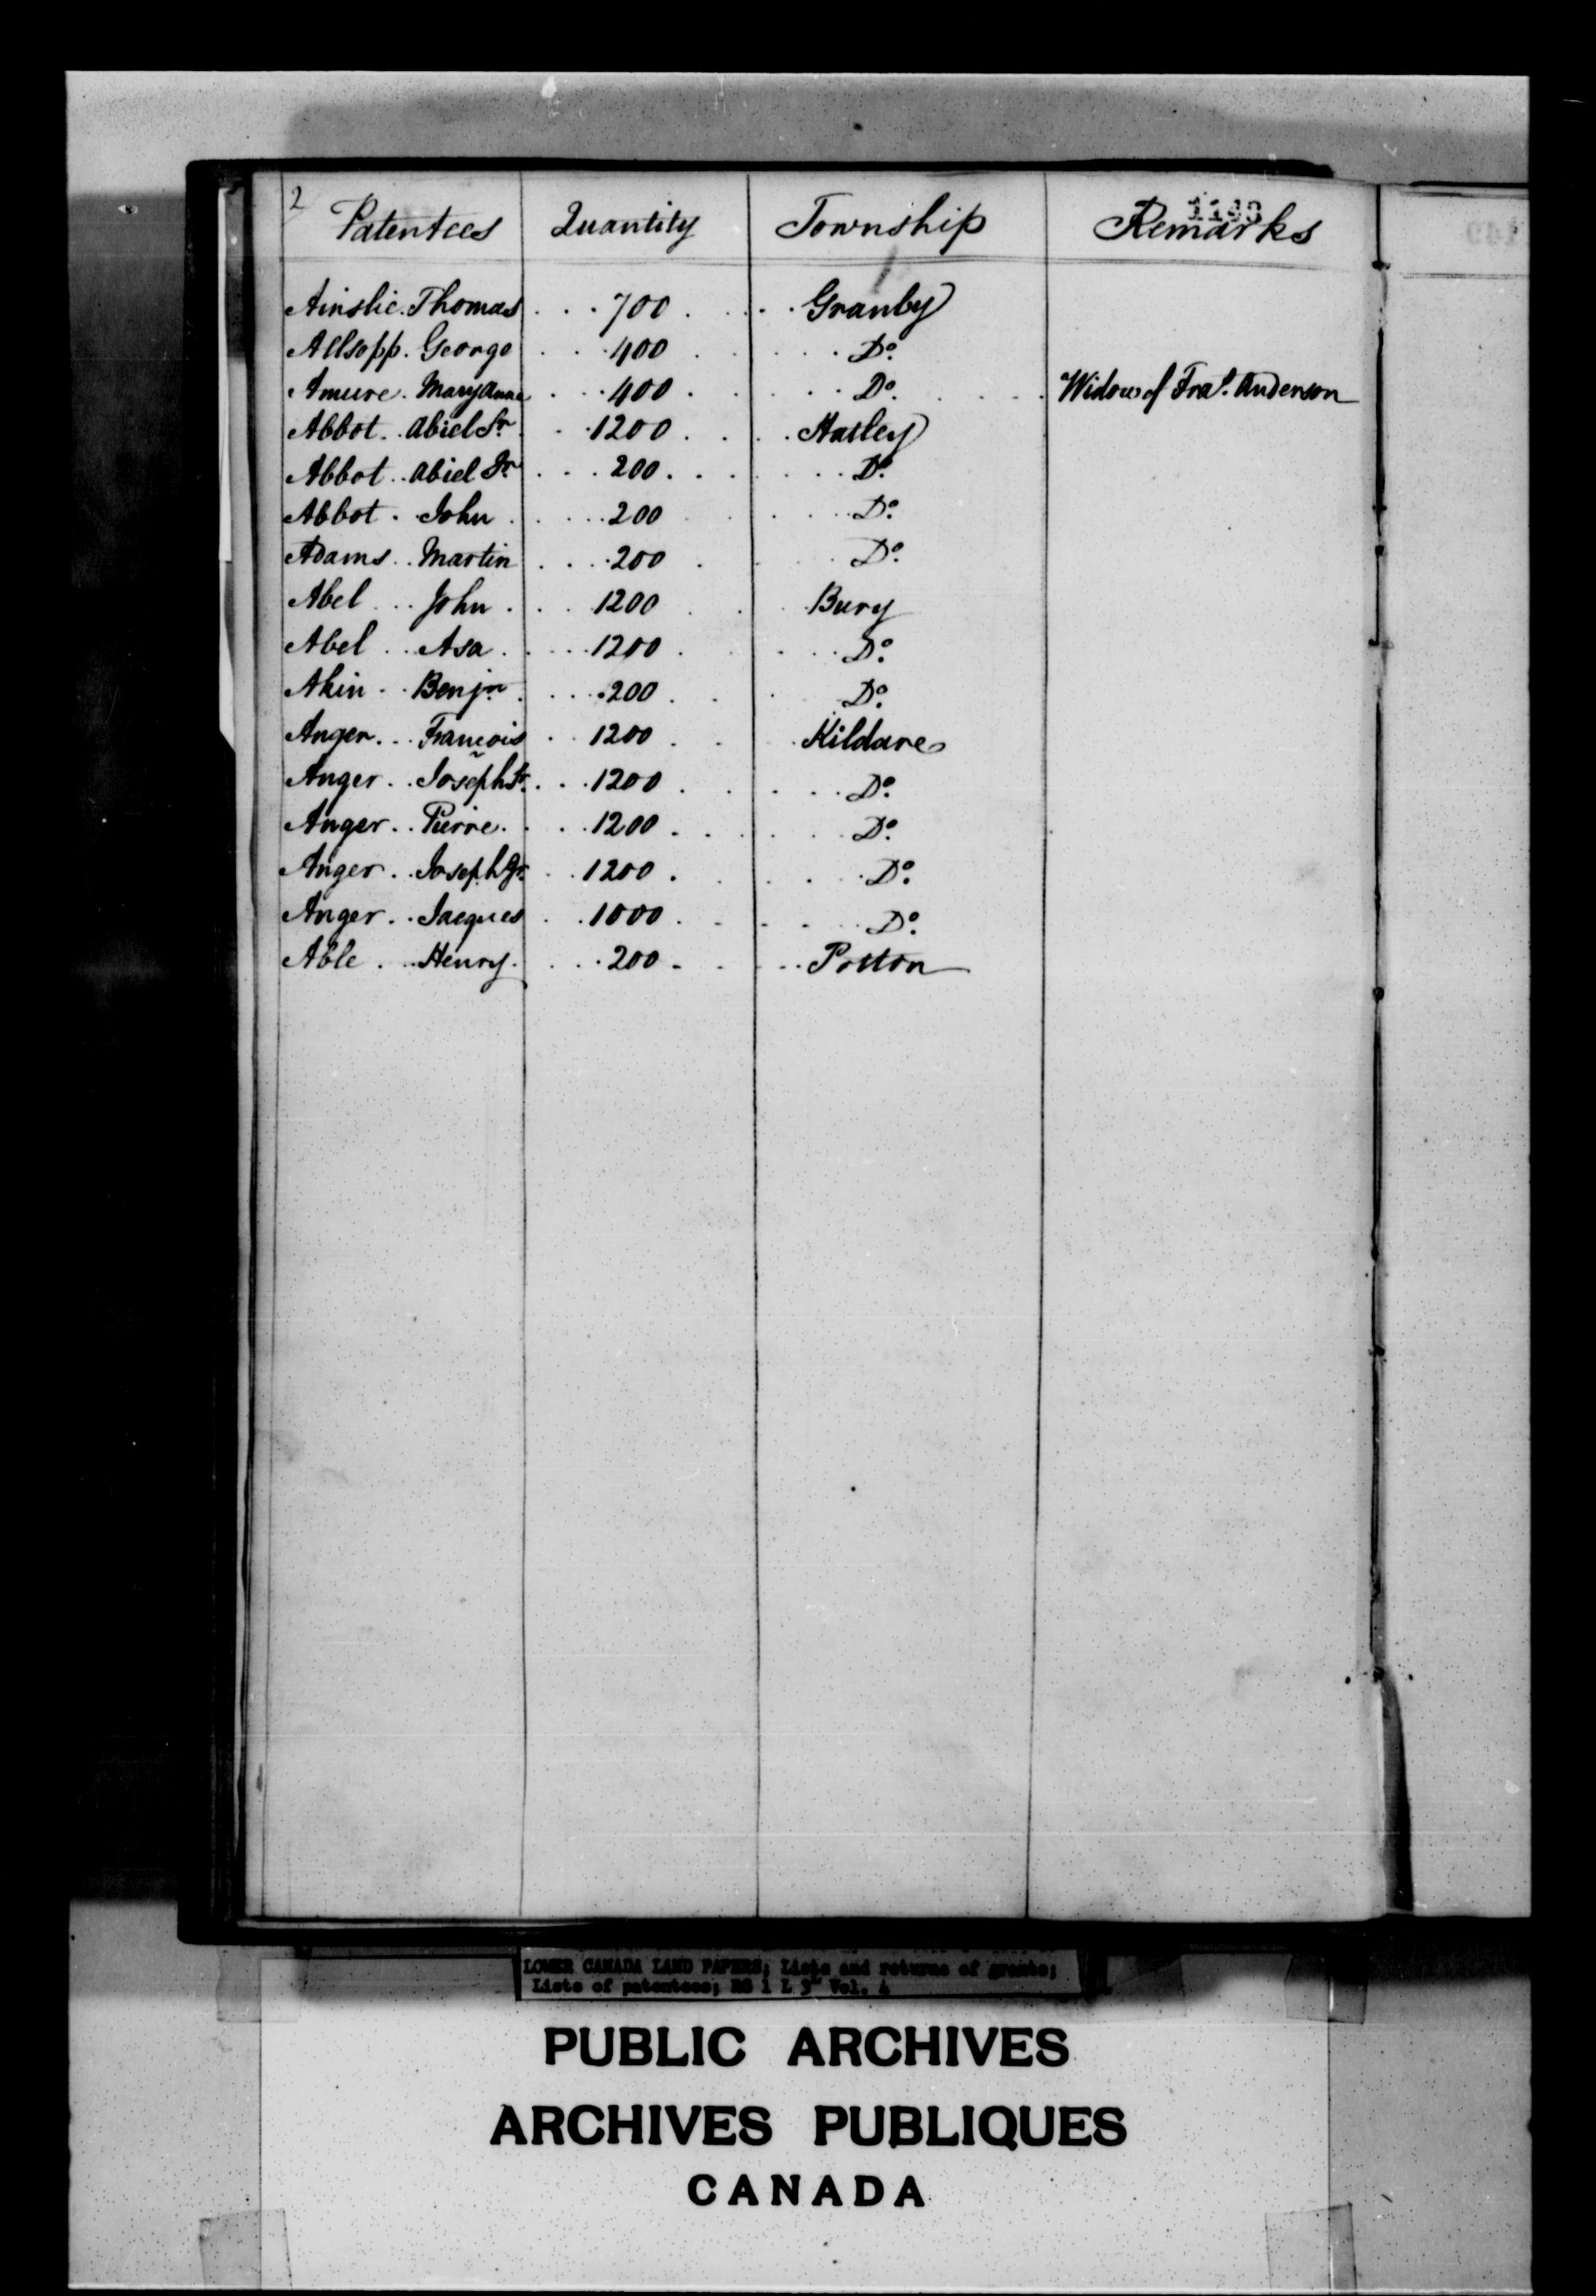 2
1148
Patentees Quantity Township Remarks
Ainslie. Thomas . . . 700 . . . . Granby
Allsopp. George . . . 400 . . . . Do.
Amure. Mary Anne . . . 400 . . . . Do. . . . . Widow of Fras. Anderson
Abbot. . Abiel Sr. . . 1200 . . . . Hatley
Abbot . . Abiel Jr. . . . 200 . . . . Do.
Abbot . . John . . . . 200 . . . . Do.
Adams . . Martin . . . . 200 . . . . Do.
Abel . . . John . . . . 1200 . . . Bury
Abel . . Asa . . . . 1200 . . . . Do.
Akin . . Benjn. . . . 200 . . . Do.
Anger . . . François . . 1200 . . . Kildare
Anger . . Joseph Sr. . . . 1200 . . . . Do.
Anger . . Pierre . . . . 1200 . . . . Do.
Anger . . Joseph Jr. . . 1200 . . . . Do.
Anger . . Jacques . . 1000 . . . . Do.
Able . . . Henry . . . . 200 . . . . Potton
LOWER CANADA LAND PAPERS; Lists and returns of grants;
Lists of patentees; RG 1 L 3 Vol. 4
PUBLIC ARCHIVES
ARCHIVES PUBLIQUES
CANADA